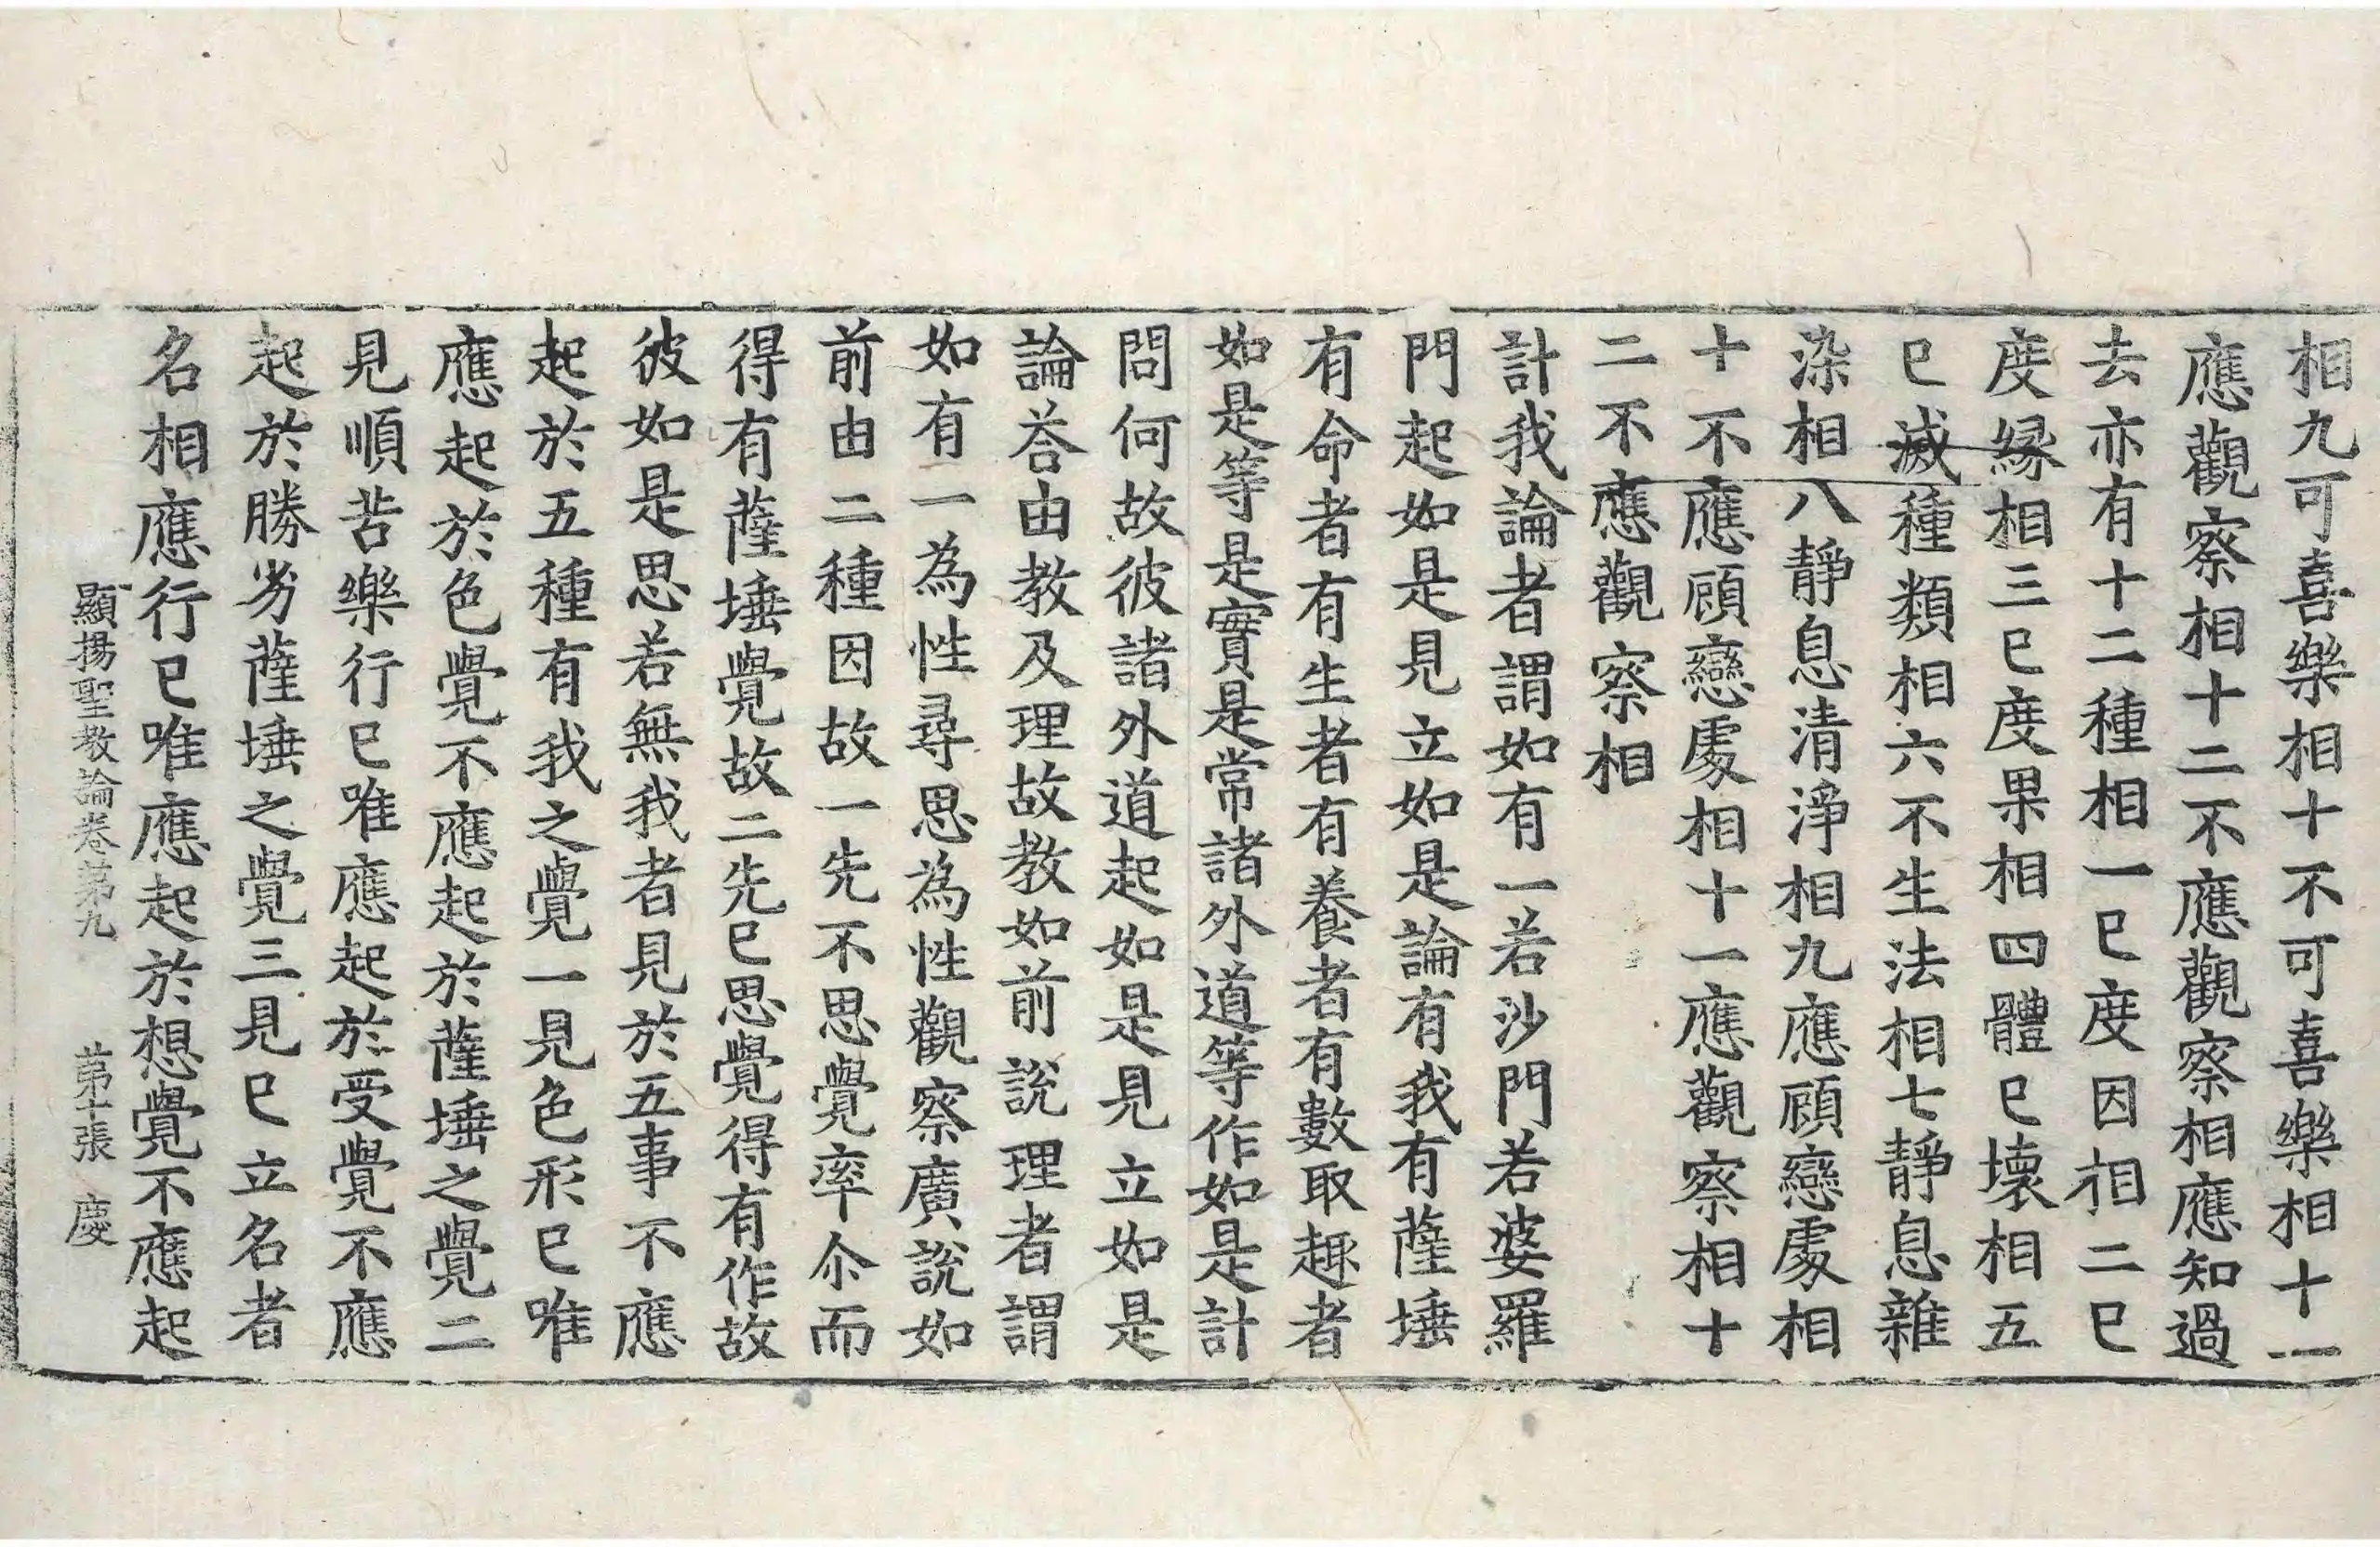 相九可喜樂相十不可喜樂相十一
應觀察相十二不應觀察相應知過
去亦有十二種相一已度因相二已
度縁相三已度果相四體已壞相五
已滅種類相六不生法相七靜息雜
染相八靜息清淨相九應顧戀處相
十不應顧戀處相十一應觀察相十
二不應觀察相
計我論者謂如有一若沙門若婆羅
門起如是見立如是論有我有薩埵
有命者有生者有養者有數取趣者
如是等是實是常諸外道等作如是計
問何故彼諸外道起如是見立如是
論荅由教及理故教如前說理者謂
如有一為性尋思為性觀察廣說如
前由二種因故一先不思覺率尒而
得有薩埵覺故二先已思覺得有作故
彼如是思若無我者見於五事不應
起於五種有我之覺一見色形已唯
應起於色覺不應起於薩埵之覺二
見順苦樂行已唯應起於受覺不應
起於勝劣薩埵之覺三見已立名者
名相應行已唯應起於想覺不應起
顯揚聖教論卷第九 第十張 慶